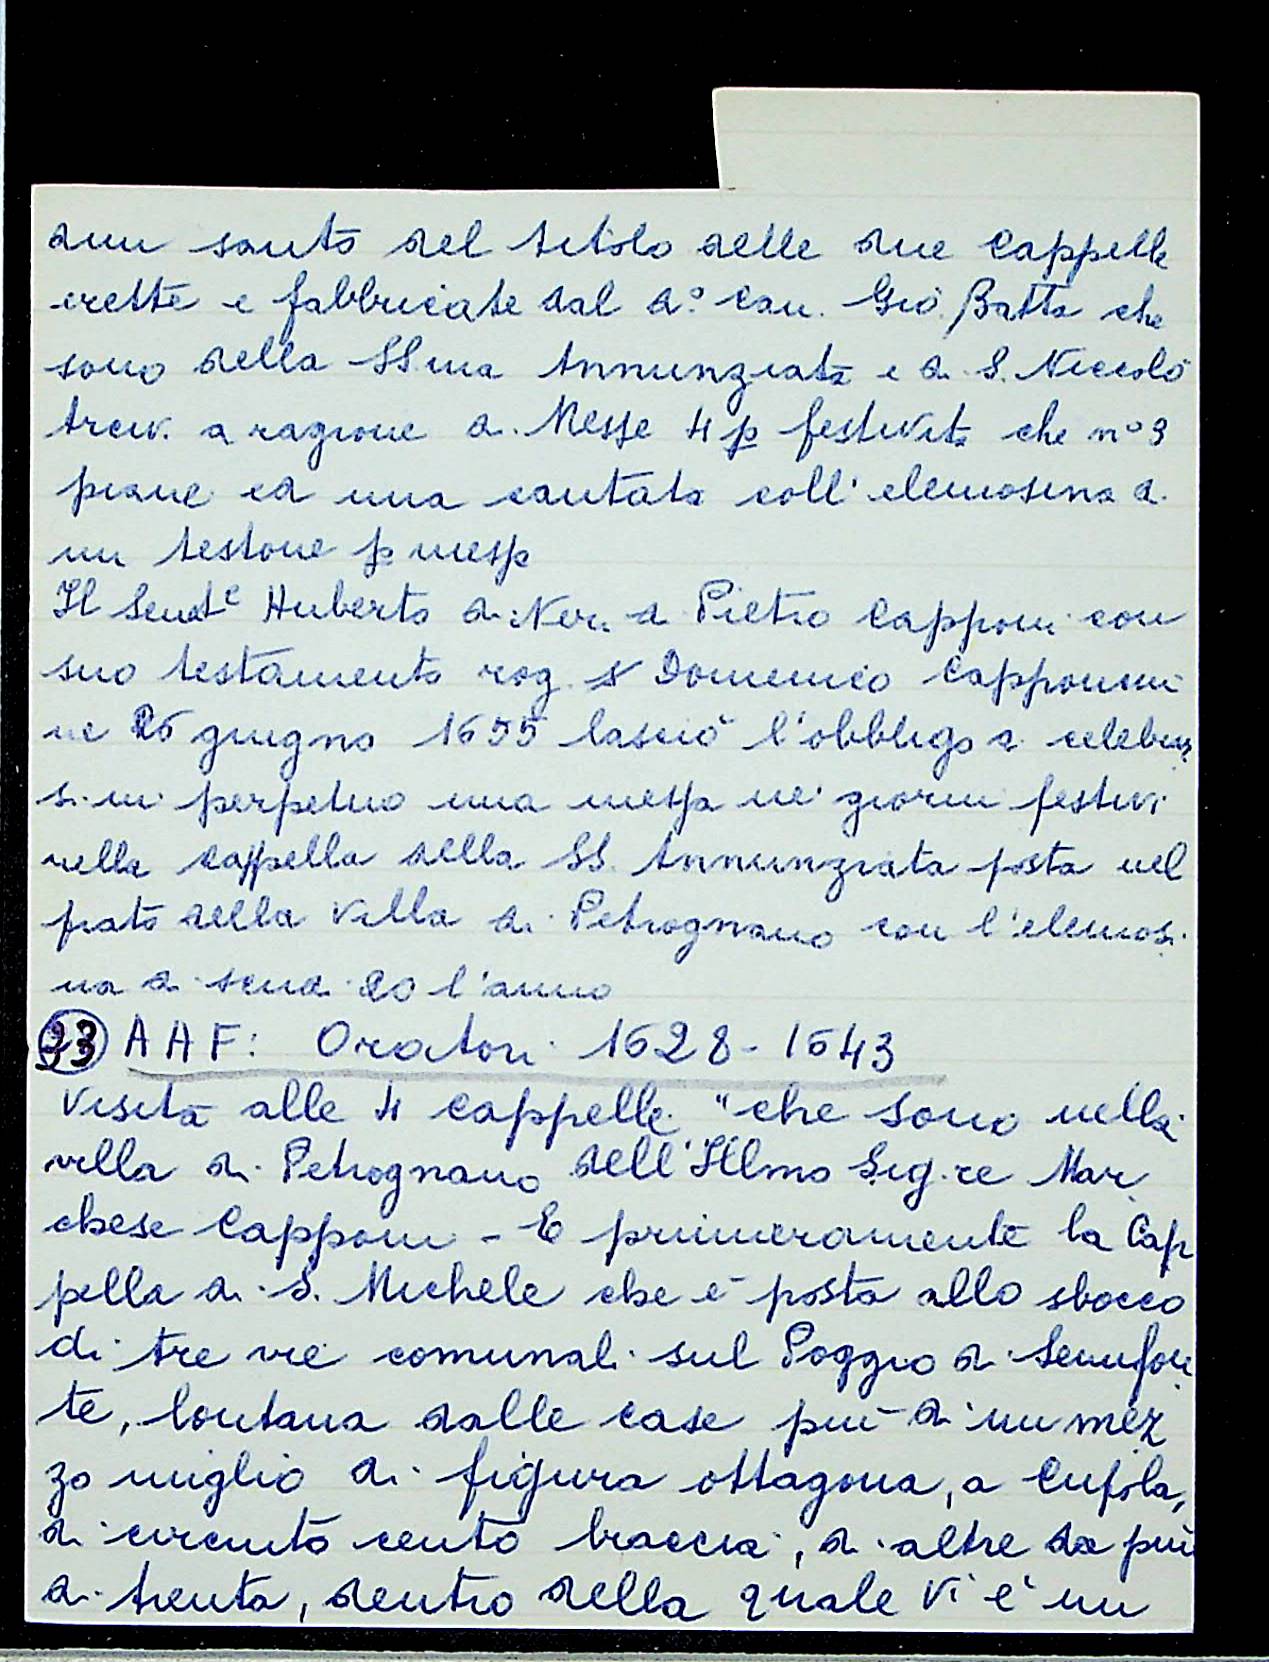 dun santo del titolo delle due Cappelle
erette e fabbricate dal d.° Cav. Gio. Batta che
sono della SS.ma Annunziata e di S. Niccolò
a ragione di Messe 4 p festività che n° 3
piane ed una cantata coll' elemosina di
un testone p messa
Il Sen.e Huberto di Neri di Pietro Capponi con
suo testamento rog. Domenico Capponcini
ne 26 giugno 1655 lasciò l'obbligo di celebrar
si in perpetuo una messa ne' giorni festivi
nella cappella della SS. Annunziata posta nel
prato della Villa di Petrognano con l'elemosi
na di scudi 20 l'anno
33 AAF: Oratori 1628-1643
Visita alle 4 cappelle "che sono nella
villa di Petrognano dell'Illmo Sig.re Mar
chese Capponi - E primeramente la Cap
pella di S. Michele che è posta allo sbocco
di tre vie comunali sul Poggio di Semifon
te, lontana dalle case più di un mez
zo miglio di figura ottagona, a Cupola,
di circuito cento braccia, di altre da più
di trenta, dentro della quale vi è un